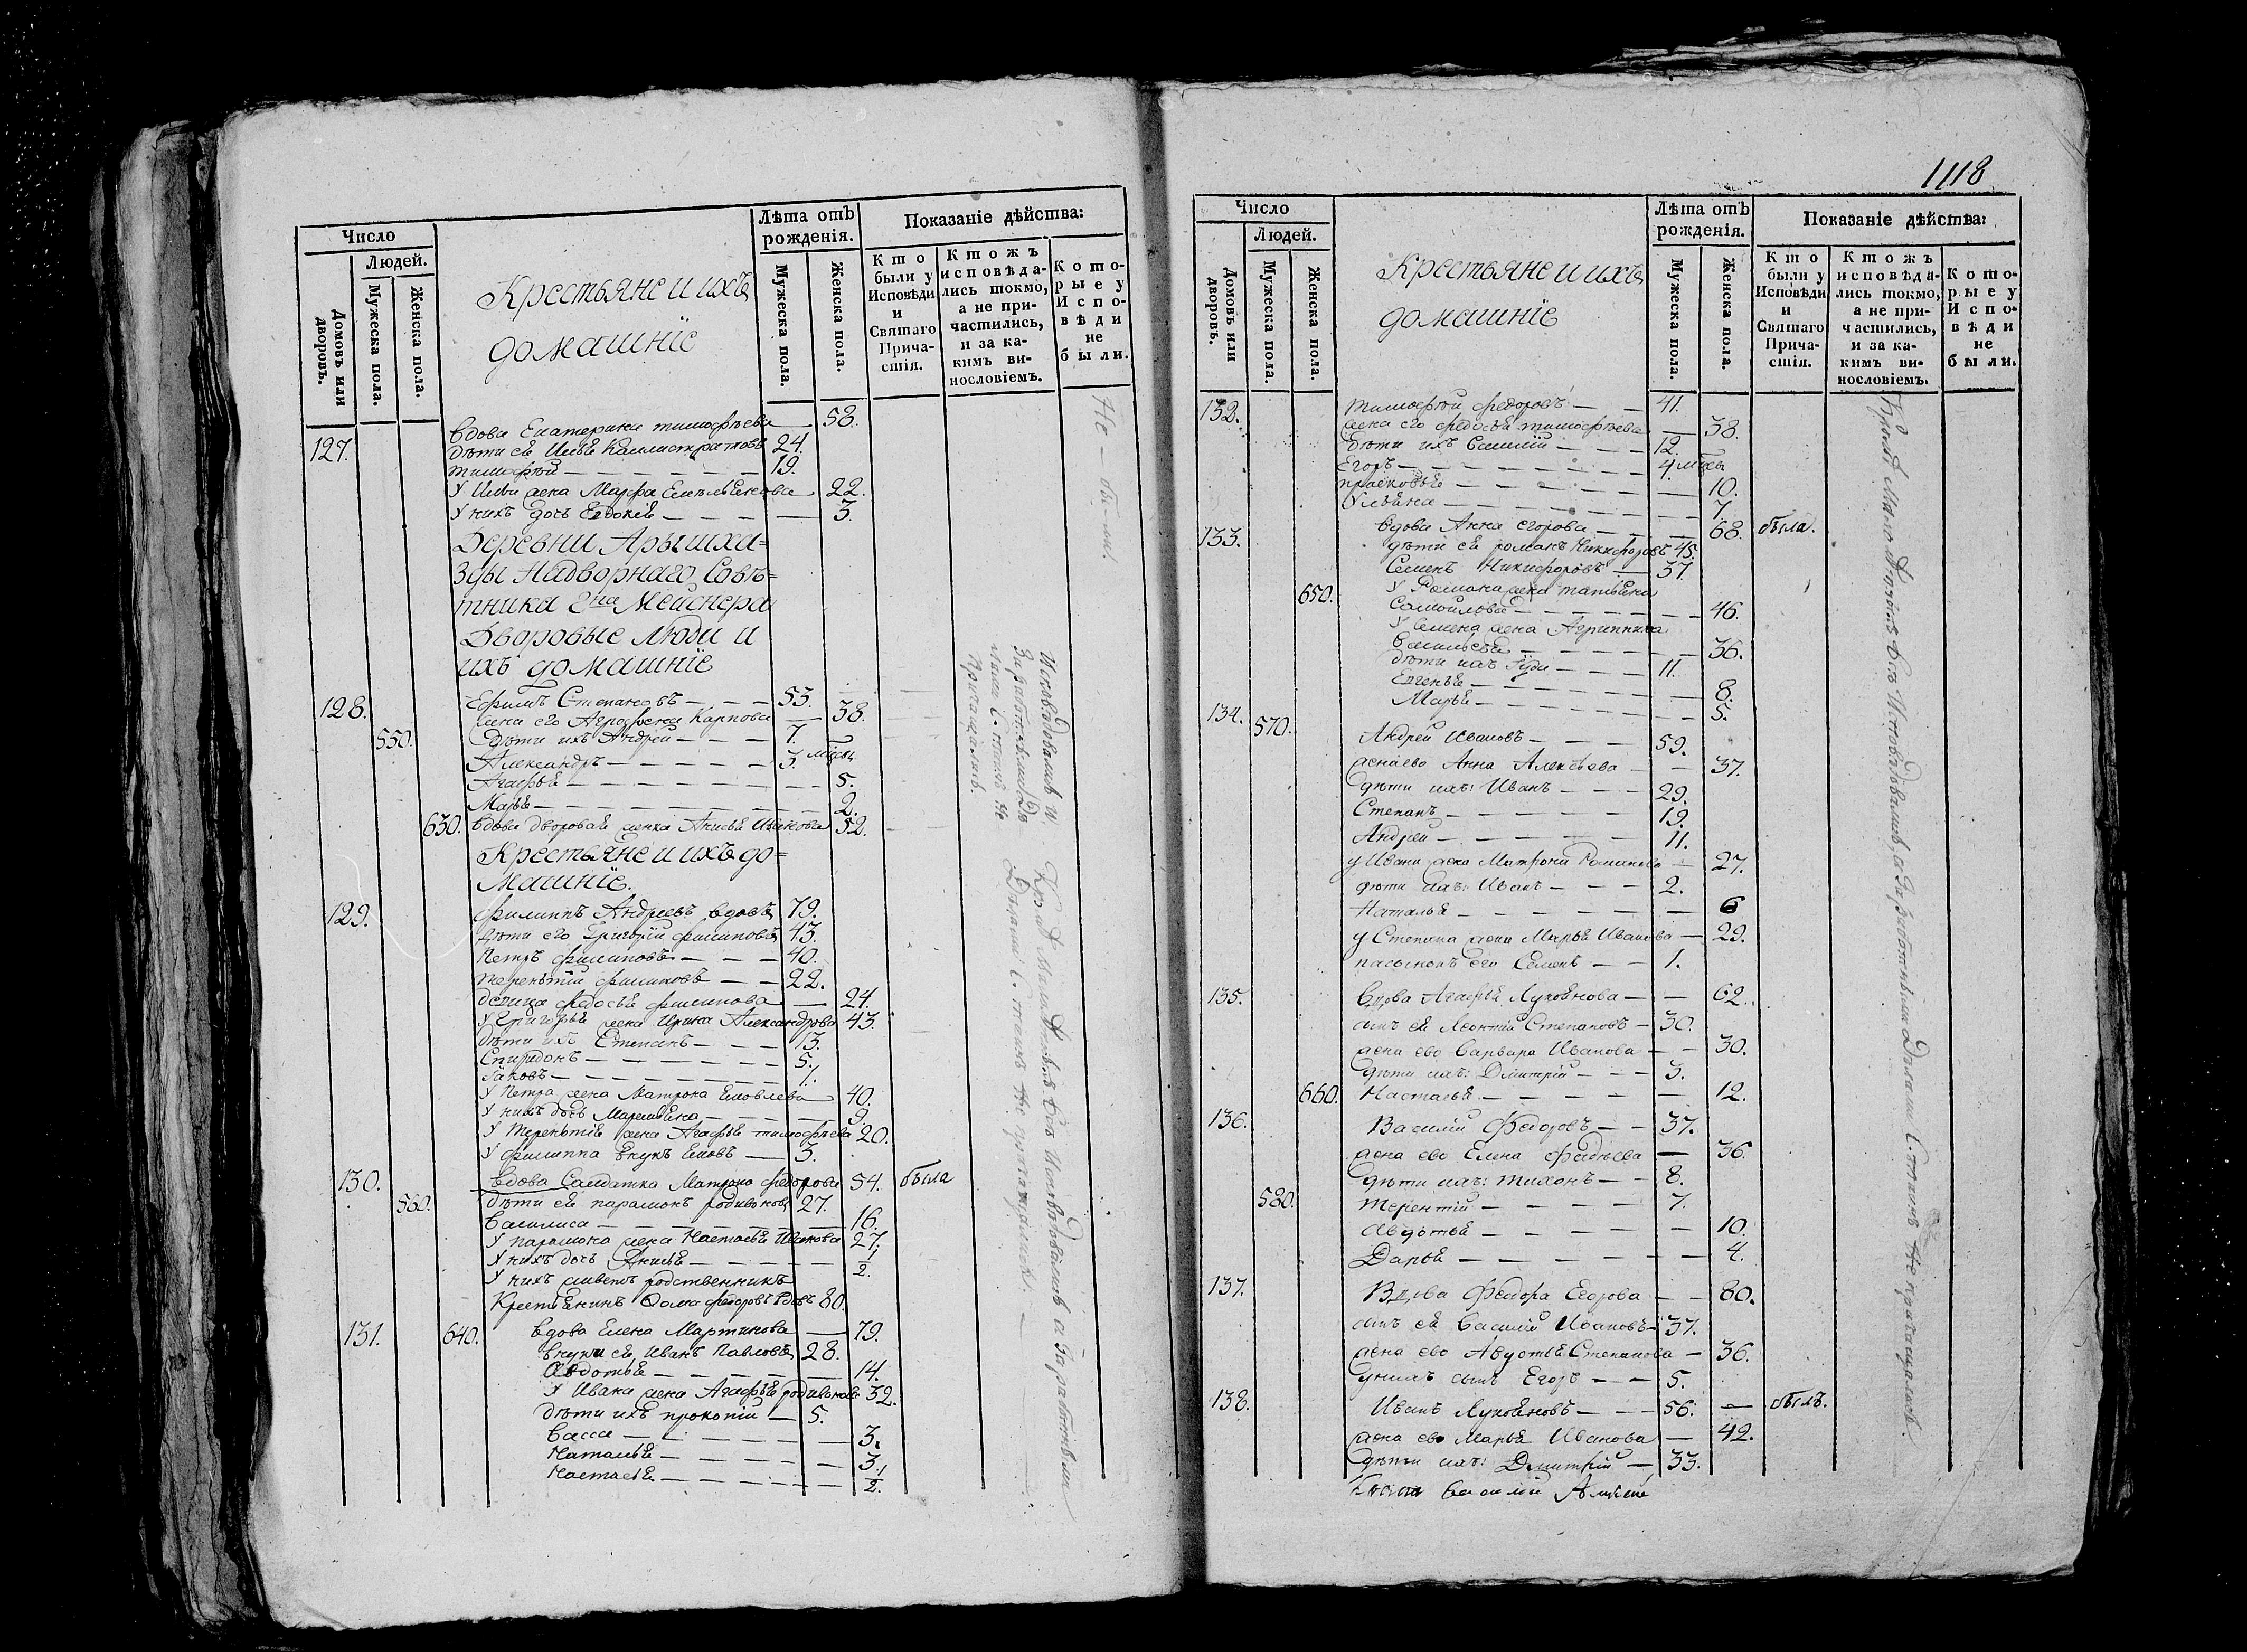 Число
Людей.
Домовъ или дворовъ.
Мужеска пола.
Женска пола.
Крестьяне и ихъ
домашніе
Лѣта отъ рожденія.
Мужеска пола.
Женска пола.
Показаніе дѣйства:
Кто были у Исповѣди и Святаго Прича-стія.
Ктожъ исповѣда-лись токмо, а не при-частились, и за ка-кимъ ви-нословіемъ.
Кото-рые у Испо-вѣди не были.
127. вдова Екатерина тимофѣева — 58.
дѣти ея Илья Каллистратовъ 24.
тимофѣй — 19.
У Ильи жена Марфа Емельянова 22.
У нихъ дочь Евдокія — 3.
Не были.
Деревни Арышха-
зды Надворнаго Совѣ-
тника 2на Мейснера
Дворовые люди и
ихъ домашніе
128. Ефимъ Степановъ — 53.
жена его Аграфена Карпова — 38.
550. дѣти ихъ Андрей — 7.
Александръ — 3. мѣсяц
Агафья — 5.
Марья — 2.
630. вдова дворовая женка Анисья Иванова 52.
Крестьяне и ихъ до-
машніе.
129. Филиппъ Андреевъ вдовъ 79.
дѣти его Григорій филиповъ 43.
Петръ филиповъ — 40.
терентій филиповъ — 22.
девица федосья филипова — 24.
У Григорья жена Ирина Александрова 43.
дѣти ихъ Степанъ — 13.
Спиридонъ — 5.
Яковъ — 1.
У Петра жена Матрона Яковлева 40.
У нихъ дочь Маремьяна — 9.
У терентія жена Агафья тимофѣева 20.
У филиппа внукъ Яковъ — 3.
130. вдова Салдатка Матрона федорова 54. была
560. дѣти ея парамонъ родивонов 27.
Василиса — 16.
У парамона жена Настасья Иванова 27.
У нихъ дочь Анисья — 1/2.
У нихъ живетъ родственникъ
Крестьянинъ Фома федоровъ вдовъ 80.
131. 640. вдова Елена Мартинова — 79.
внуки ея Иванъ Павловъ 28.
Авдотья — 14.
У Ивана жена Агафья родивонова 32.
дѣти ихъ прокопій — 5.
Васса — 3.
Наталья — 3.
Настасья — 1/2.
1118
Число
Людей.
Домовъ или дворовъ.
Мужеска пола.
Женска пола.
Крестьяне и ихъ
домашніе
Лѣта отъ рожденія.
Мужеска пола.
Женска пола.
Показаніе дѣйства:
Кто были у Исповѣди и Святаго Прича-стія.
Ктожъ исповѣда-лись токмо, а не при-частились, и за ка-кимъ ви-нословіемъ.
Кото-рые у Испо-вѣди не были.
132. тимофѣй федоровъ — 41.
жена его федосья тимофѣева — 38.
дѣти ихъ Василій — 12.
Егоръ — 4 мѣсец
прасковья — 10.
Ульяна — 7.
133. вдова Анна егорова — 68. была.
дѣти ея романъ Никифоровъ 45.
Семенъ Никифоровъ — 37.
650. У Романа жена татьяна
Самойлова — 46.
У Семена жена Агриппина
Васильева — 36.
дѣти ихъ Іуда — 11.
Евгенья — 8.
Марья — 5.
134. 570. Андрей Ивановъ — 59.
жена ево Анна Алексѣева — 37.
дѣти ихъ: Иванъ — 29.
Степанъ — 19.
Андрей — 11.
у Ивана жена Матрона Романова — 27.
дѣти ихъ: Иванъ — 2.
Наталья — 6
у Степана жена Марья Иванова — 29.
пасынокъ его Семенъ — 1.
135. Вдова Агафья Лукоянова — 62.
сынъ ея Леонтій Степановъ — 30.
жена ево Варвара Иванова — 30.
дѣти ихъ: Дмитрій — 3.
660. Настасья — 12.
136. Василій Федоровъ — 37.
жена ево Елена Фадѣева — 36.
дѣти ихъ: тихонъ — 8.
580. терентій — 7.
Авдотья — 10.
Дарья — 4.
137. Вдова Федора Егорова — 80.
сынъ ея Василій Ивановъ — 37.
жена ево Авдотья Степанова — 36.
у нихъ сынъ Егоръ — 5.
138. Иванъ Лукояновъ — 56. — былъ.
жена ево Марья Иванова — 42.
дѣти ихъ: Дмитрій — 33.